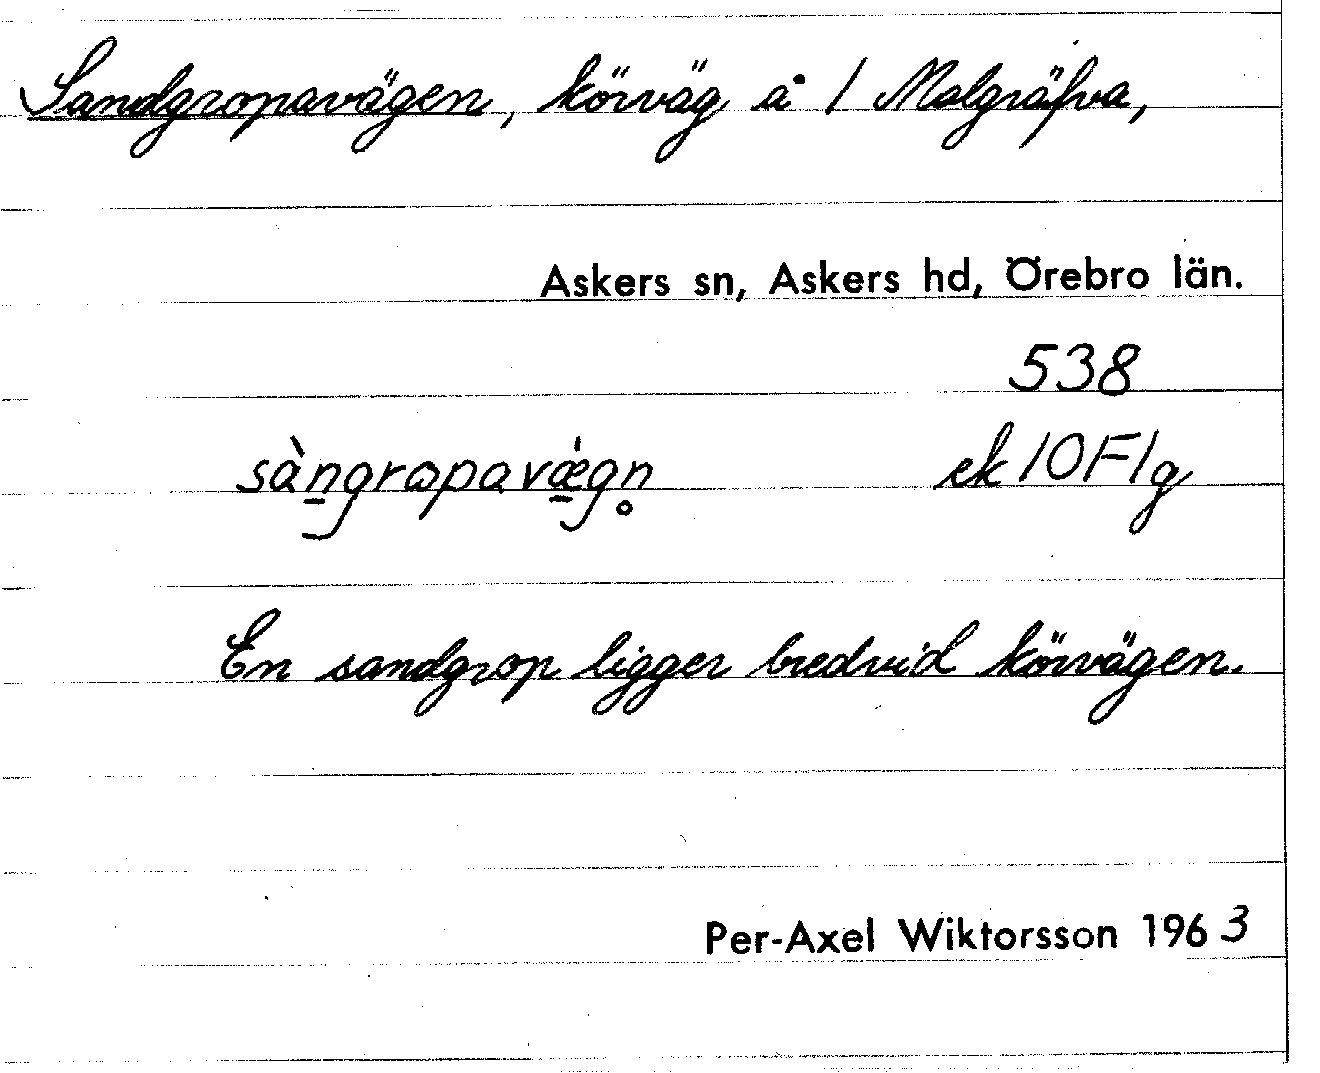 Sandgropavägen, körväg å 1 Malgräfva,
Askers sn, Askers hd, Örebro län.
538
sàngropavǽgn̥ ek 10F1g
En sandgrop ligger bredvid körvägen.
Per-Axel Wiktorsson 1963